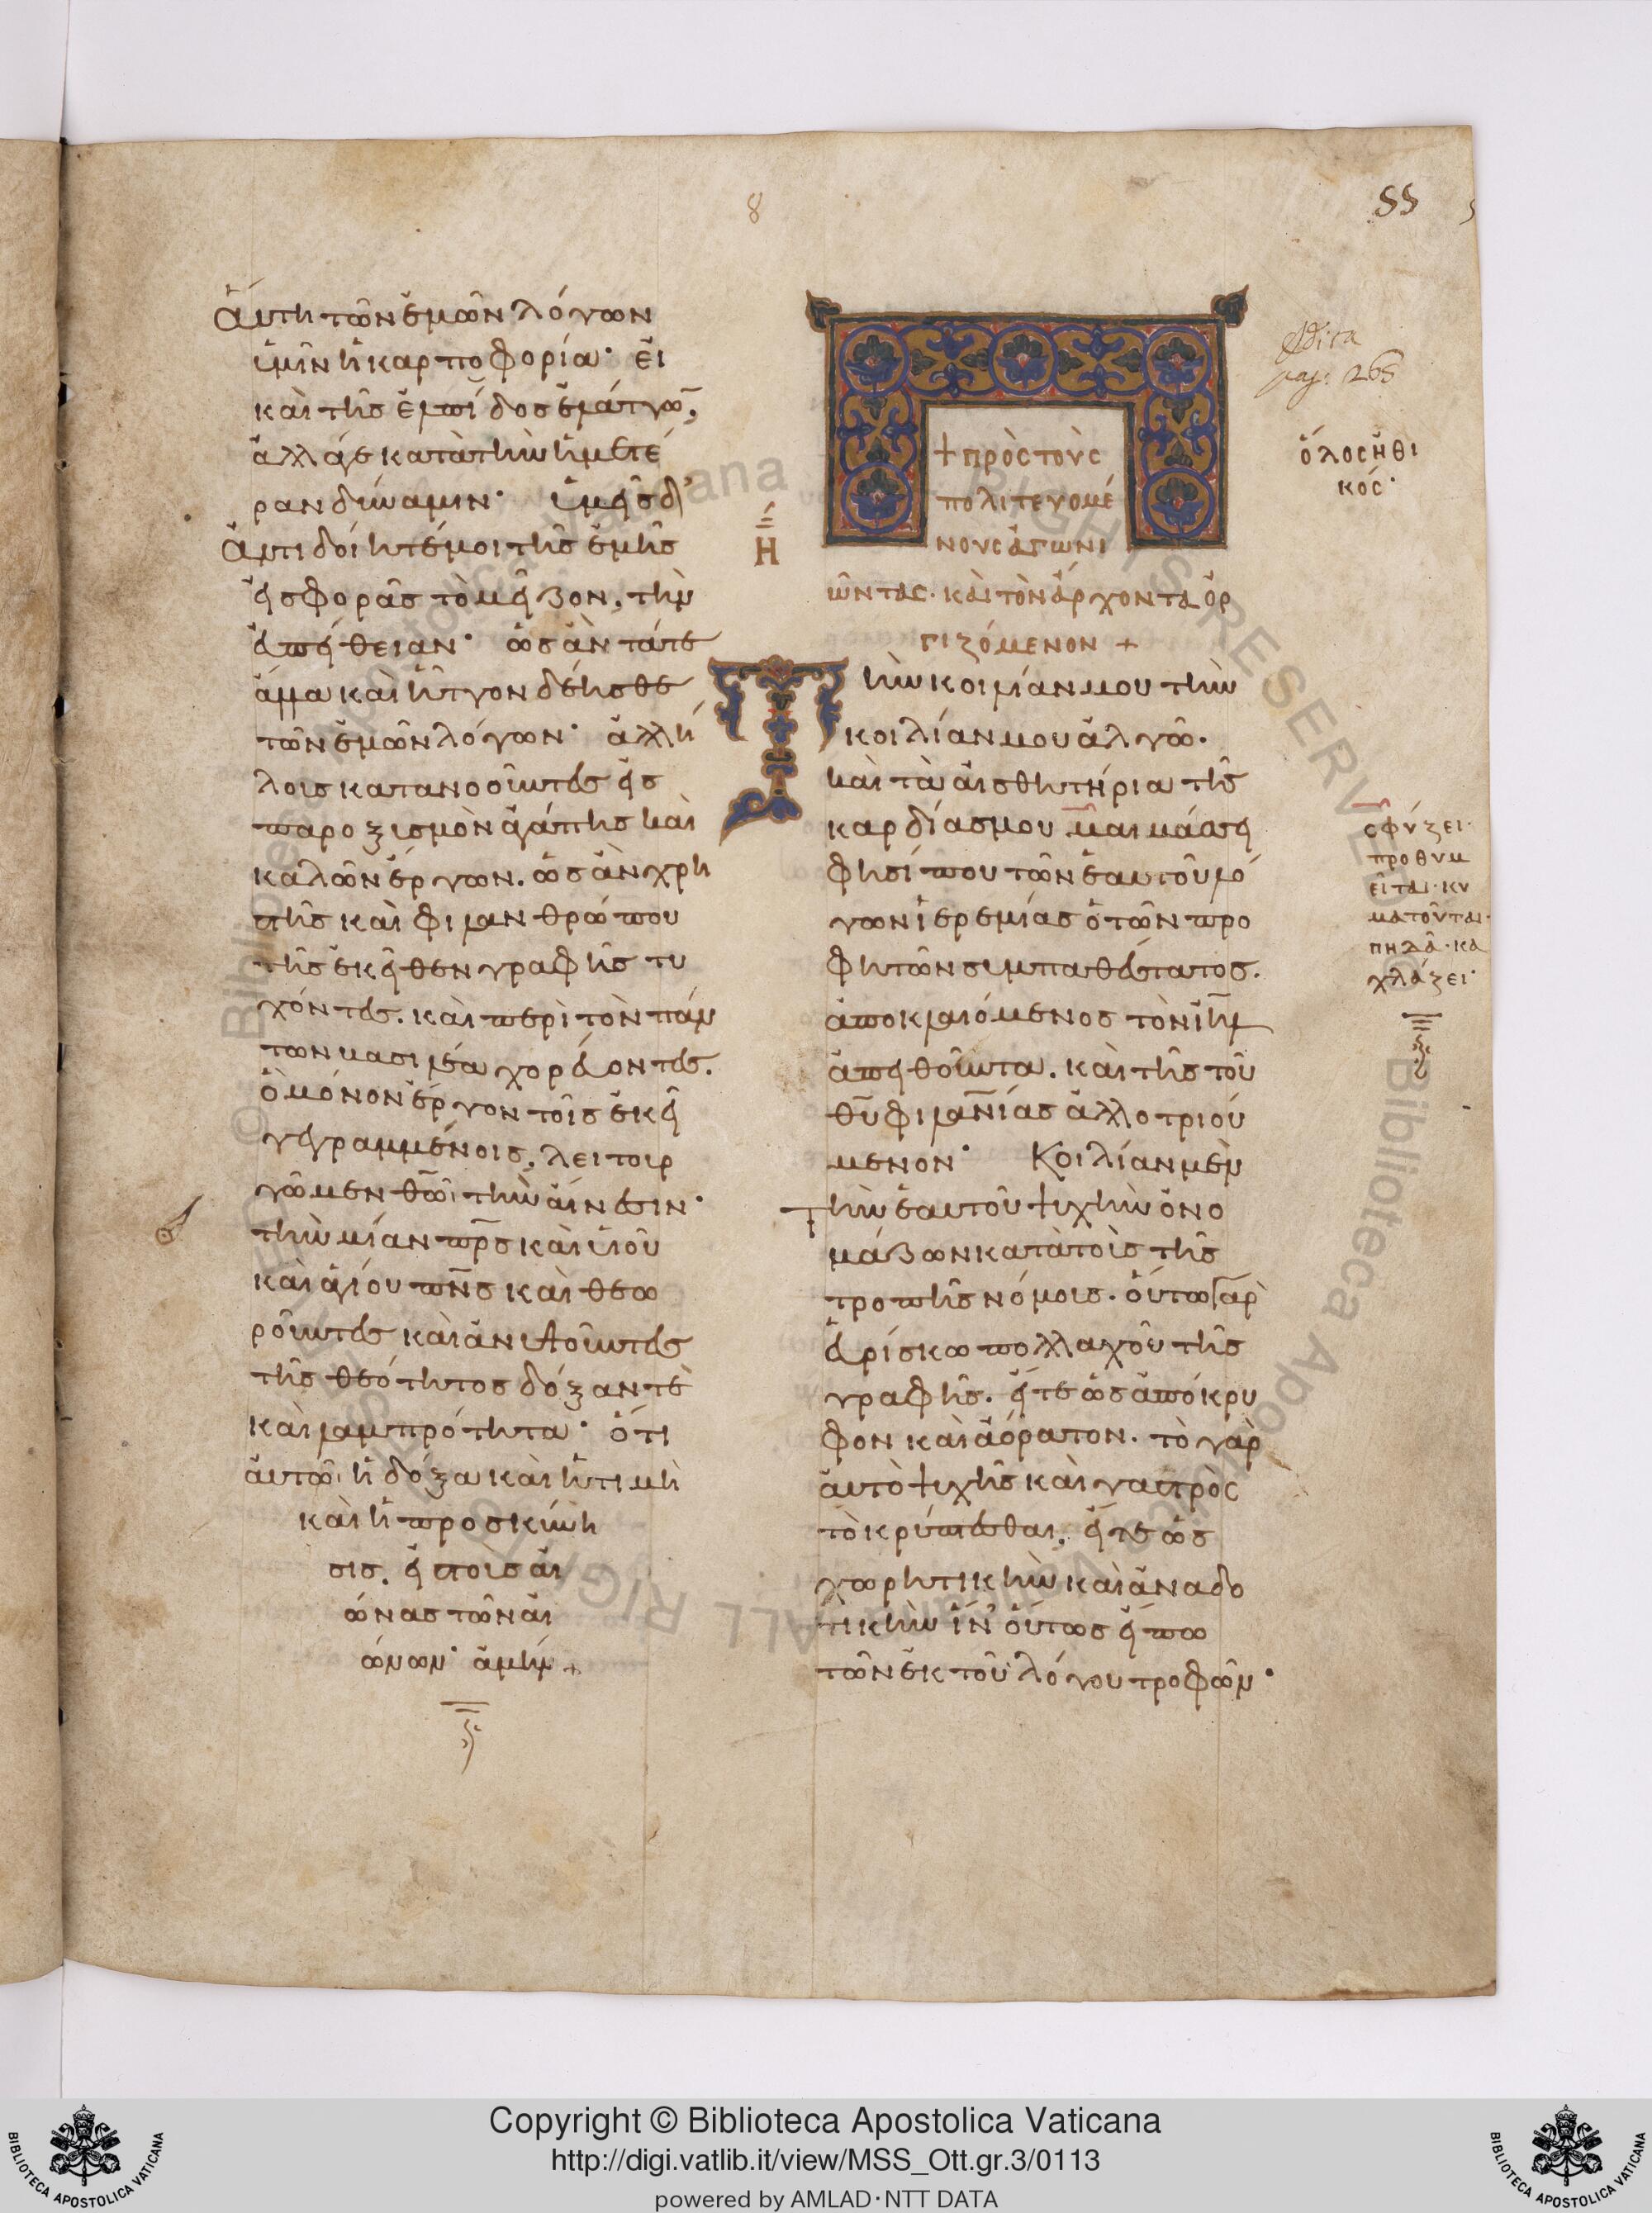 8
55
Αὕτη τῶν ἐμῶν λόγων
ὑμῖν ἡ καρποφορία· εἰ
καὶ τῆς ἐλπίδος ἐλάττω,
ἀλλά γε κατὰ τὴν ἡμετέ
ραν δύναμιν· ὑμεῖς δ'
Ἀντιδοίητέ μοι τῆς ἐμῆς
εἰσφορᾶς τὸ μεῖζον, τὴν
εὐπείθειαν· ὡς ἂν τά τε
ἄλλα καὶ ἧττον δέησθε
τῶν ἐμῶν λόγων· ἀλλή
λοις κατανοοῦντες εἰς
παροξυσμὸν ἀγάπης καὶ
καλῶν ἔργων. ὡς ἂν χρη
στῆς καὶ φιλανθρώπου
τῆς ἐκεῖθεν γραφῆς τυ
χόντες. καὶ περὶ τὸν πάν
των βασιλέα χορεύοντες.
ὃ μόνον ἔργον τοῖς ἐκεῖ
γεγραμμένοις, λειτουρ
γῶμεν θῶι τὴν αἴνεσιν·
τὴν μίαν πρς καὶ υἱοῦ
καὶ ἁγίου πνς καὶ θεω
ροῦντες καὶ ἀνυμνοῦντες
τῆς θεότητος δόξαν τὲ
καὶ λαμπρότητα· ὅτι
αὐτῶι ἡ δόξα καὶ ἡ τιμὴ
καὶ ἡ προσκύνη
σις. εἰς τοὺς αἰ
ῶνας τῶν αἰ
ώνων· ἀμήν +
Η
+ πρὸς τοὺς
πολιτευομέ
νους ἀγωνι
ῶντας· καὶ τὸν ἄρχοντα ὀρ
γιζόμενον +
Τὴν κοιλίαν μου τὴν
κοιλίαν μου ἀλγῶ.
καὶ τὰ αἰσθητήρια τῆς
καρδίας μου μαιμάσσει
φησί που τῶν ἑαυτοῦ λό
γων ἱερεμίας ὁ τῶν προ
φητῶν συμπαθέστατος.
ἀποκλαιόμενος τὸν ἰηλ
ἀπειθοῦντα. καὶ τῆς τοῦ
θυ φιλανίας ἀλλοτριού
μενον· Κοιλίαν μὲν
τὴν ἑαυτοῦ ψυχὴν ὀνο
μάζων κατὰ τοὺς τῆς
τροπῆς νόμους. οὕτω γὰρ
εὑρίσκω πολλαχοῦ τῆς
γραφῆς. εἴτε ὡς ἀπόκρυ
φον καὶ ἀόρατον. τὸ γὰρ
αὐτὸ ψυχῆς καὶ γαστρὸς
τὸ κρύπτεσθαι, εἴτε ὡς
χωρητικὴν καὶ ἀναδο
τικὴν ἵν' οὕτως εἴπω
τῶν ἐκ τοῦ λόγου τροφῶν·
Edita
pag. 265
ὅλος ἠθι
κός·
σφύζει·
προθυμ
εῖται· κυ
ματοῦται·
πηδᾶ· κα
χλάζει·
© Biblioteca Apostolica Vaticana ALL RIGHTS RESERVED
Copyright © Biblioteca Apostolica Vaticana
http://digi.vatlib.it/view/MSS_Ott.gr.3/0113
powered by AMLAD·NTT DATA
BIBLIOTECA APOSTOLICA VATICANA
BIBLIOTECA APOSTOLICA VATICANA